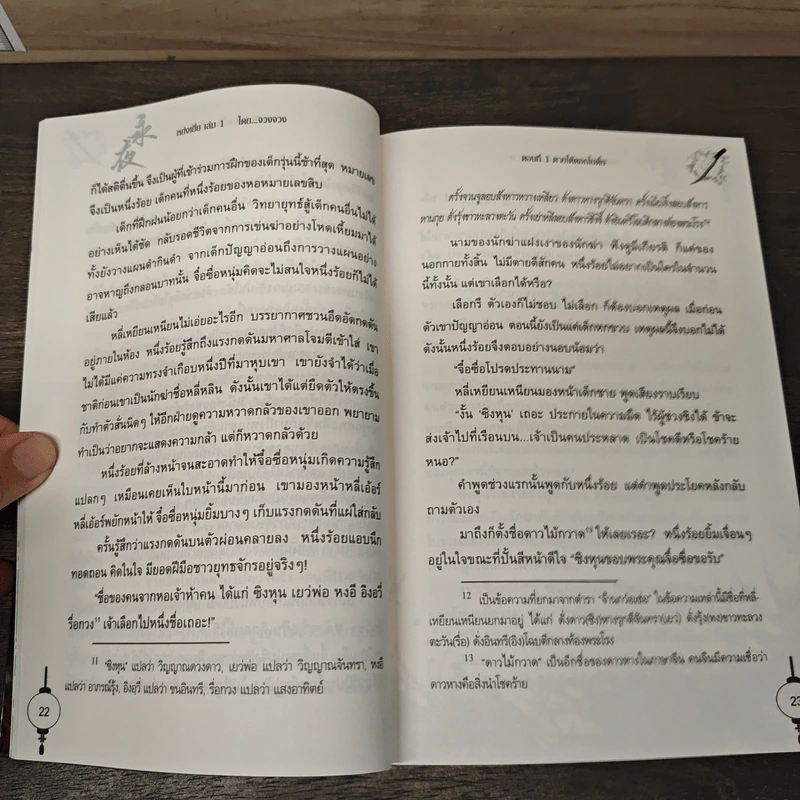 永夜
หย่งเยี่ย เล่ม 1 โดย...จวงจวง
ก็ได้สติตื่นขึ้น จึงเป็นผู้ที่เข้าร่วมการฝึกของเด็กรุ่นนี้ช้าที่สุด หมายเลข
จึงเป็นหนึ่งร้อย เด็กคนที่หนึ่งร้อยของหอหมายเลขสิบ
เด็กที่ฝึกฝนน้อยกว่าเด็กคนอื่น วิทยายุทธ์สู้เด็กคนอื่นไม่ได้
อย่างเห็นได้ชัด กลับรอดชีวิตจากการเข่นฆ่าอย่างโหดเหี้ยมมาได้
ทั้งยังวางแผนดำกินดำ จากเด็กปัญญาอ่อนถึงการวางแผนอย่าง
อาจหาญถึงกลอนบาทนั้น จื๋อซื่อหนุ่มคิดจะไม่สนใจหนึ่งร้อยก็ไม่ได้
เสียแล้ว
หลี่เหยียนเหนียนไม่เอ่ยอะไรอีก บรรยากาศชวนอึดอัดกดดัน
อยู่ภายในห้อง หนึ่งร้อยรู้สึกถึงแรงกดดันมหาศาลโจมตีเข้าใส่ เขา
ไม่ได้มีแค่ความทรงจำเกือบหนึ่งปีที่มาหุบเขา เขายังจำได้ว่าเมื่อ
ชาติก่อนเขาเป็นนักฆ่าชื่อหลี่หลิน ดังนั้นเขาได้แต่ยืดตัวให้ตรงขึ้น
กับทำตัวสั่นนิดๆ ให้อีกฝ่ายดูความหวาดกลัวของเขาออก พยายาม
ทำเป็นว่าอยากจะแสดงความกล้า แต่ก็หวาดกลัวด้วย
หนึ่งร้อยที่ล้างหน้าจนสะอาดทำให้จื๋อซื่อหนุ่มเกิดความรู้สึก
แปลกๆ เหมือนเคยเห็นใบหน้านี้มาก่อน เขามองหน้าหลี่เอ้อร์
หลี่เอ้อร์พยักหน้าให้ จื๋อซื่อหนุ่มยิ้มบางๆ เก็บแรงกดดันที่แผ่ใส่กลับ
ครั้นรู้สึกว่าแรงกดดันบนตัวผ่อนคลายลง หนึ่งร้อยแอบนึก
ทอดถอน คิดในใจ มียอดฝีมือชาวยุทธจักรอยู่จริงๆ!
“ชื่อของคนจากหอเจ้าห้าคน ได้แก่ ซิงหุน เยว่พ่อ หงอี อิงอวี่
รื่อกวง¹¹ เจ้าเลือกไปหนึ่งชื่อเถอะ!”
¹¹ “ซิงหุน” แปลว่า วิญญาณดวงดาว, เยว่พ่อ แปลว่า วิญญาณจันทรา, หงอี
แปลว่า อาภรณ์รุ้ง, อิงอวี่ แปลว่า ขนอินทรี, รื่อกวง แปลว่า แสงอาทิตย์
22
ตอนที่ 1
นามของนักฆ่าแฝงเงาของนักฆ่า ฟังดูมีเกียรติ ก็แค่ของ
นอกกายทั้งสิ้น ไม่มีตายดีสักคน หนึ่งร้อยไม่อยากเป็นใครในจำนวน
นี้ทั้งนั้น แต่เขาเลือกได้หรือ?
เลือกรึ ตัวเองก็ไม่ชอบ ไม่เลือก ก็ต้องบอกเหตุผล เมื่อก่อน
ตัวเขาปัญญาอ่อน ตอนนี้ยังเป็นแค่เด็กหกขวบ เหตุผลนี้จึงบอกไม่ได้
ดังนั้นหนึ่งร้อยจึงตอบอย่างนอบน้อมว่า
“จื๋อซื่อโปรดประทานนาม”
หลี่เหยียนเหนียนมองหน้าเด็กชาย พูดเสียงราบเรียบ
“งั้น ‘ซิงหุน’ เถอะ ประกายในความมืด ไร้ผู้ช่วงชิงได้ ข้าจะ
ส่งเจ้าไปที่เรือนบน...เจ้าเป็นคนประหลาด เป็นโชคดีหรือโชคร้าย
หนอ?”
คำพูดช่วงแรกนั้นพูดกับหนึ่งร้อย แต่คำพูดประโยคหลังกลับ
ถามตัวเอง
มาถึงก็ตั้งชื่อดาวไม้กวาด¹³ ให้เลยเรอะ? หนึ่งร้อยยิ้มเจื่อนๆ
อยู่ในใจขณะที่ปั้นสีหน้าดีใจ “ซิงหุนขอบพระคุณจื๋อซื่อขอรับ”
¹² เป็นข้อความที่ยกมาจากตำรา ในข้อความเหล่านี้มีชื่อที่หลี่-
เหยียนเหนียนยกมาอยู่ ได้แก่
ตะวัน(รื่อ) ดั่งอินทรี(อิง)โฉบตีกลางท้องพระโรง
¹³ “ดาวไม้กวาด” เป็นอีกชื่อของดาวหางในภาษาจีน คนจีนมีความเชื่อว่า
ดาวหางคือสิ่งนำโชคร้าย
23